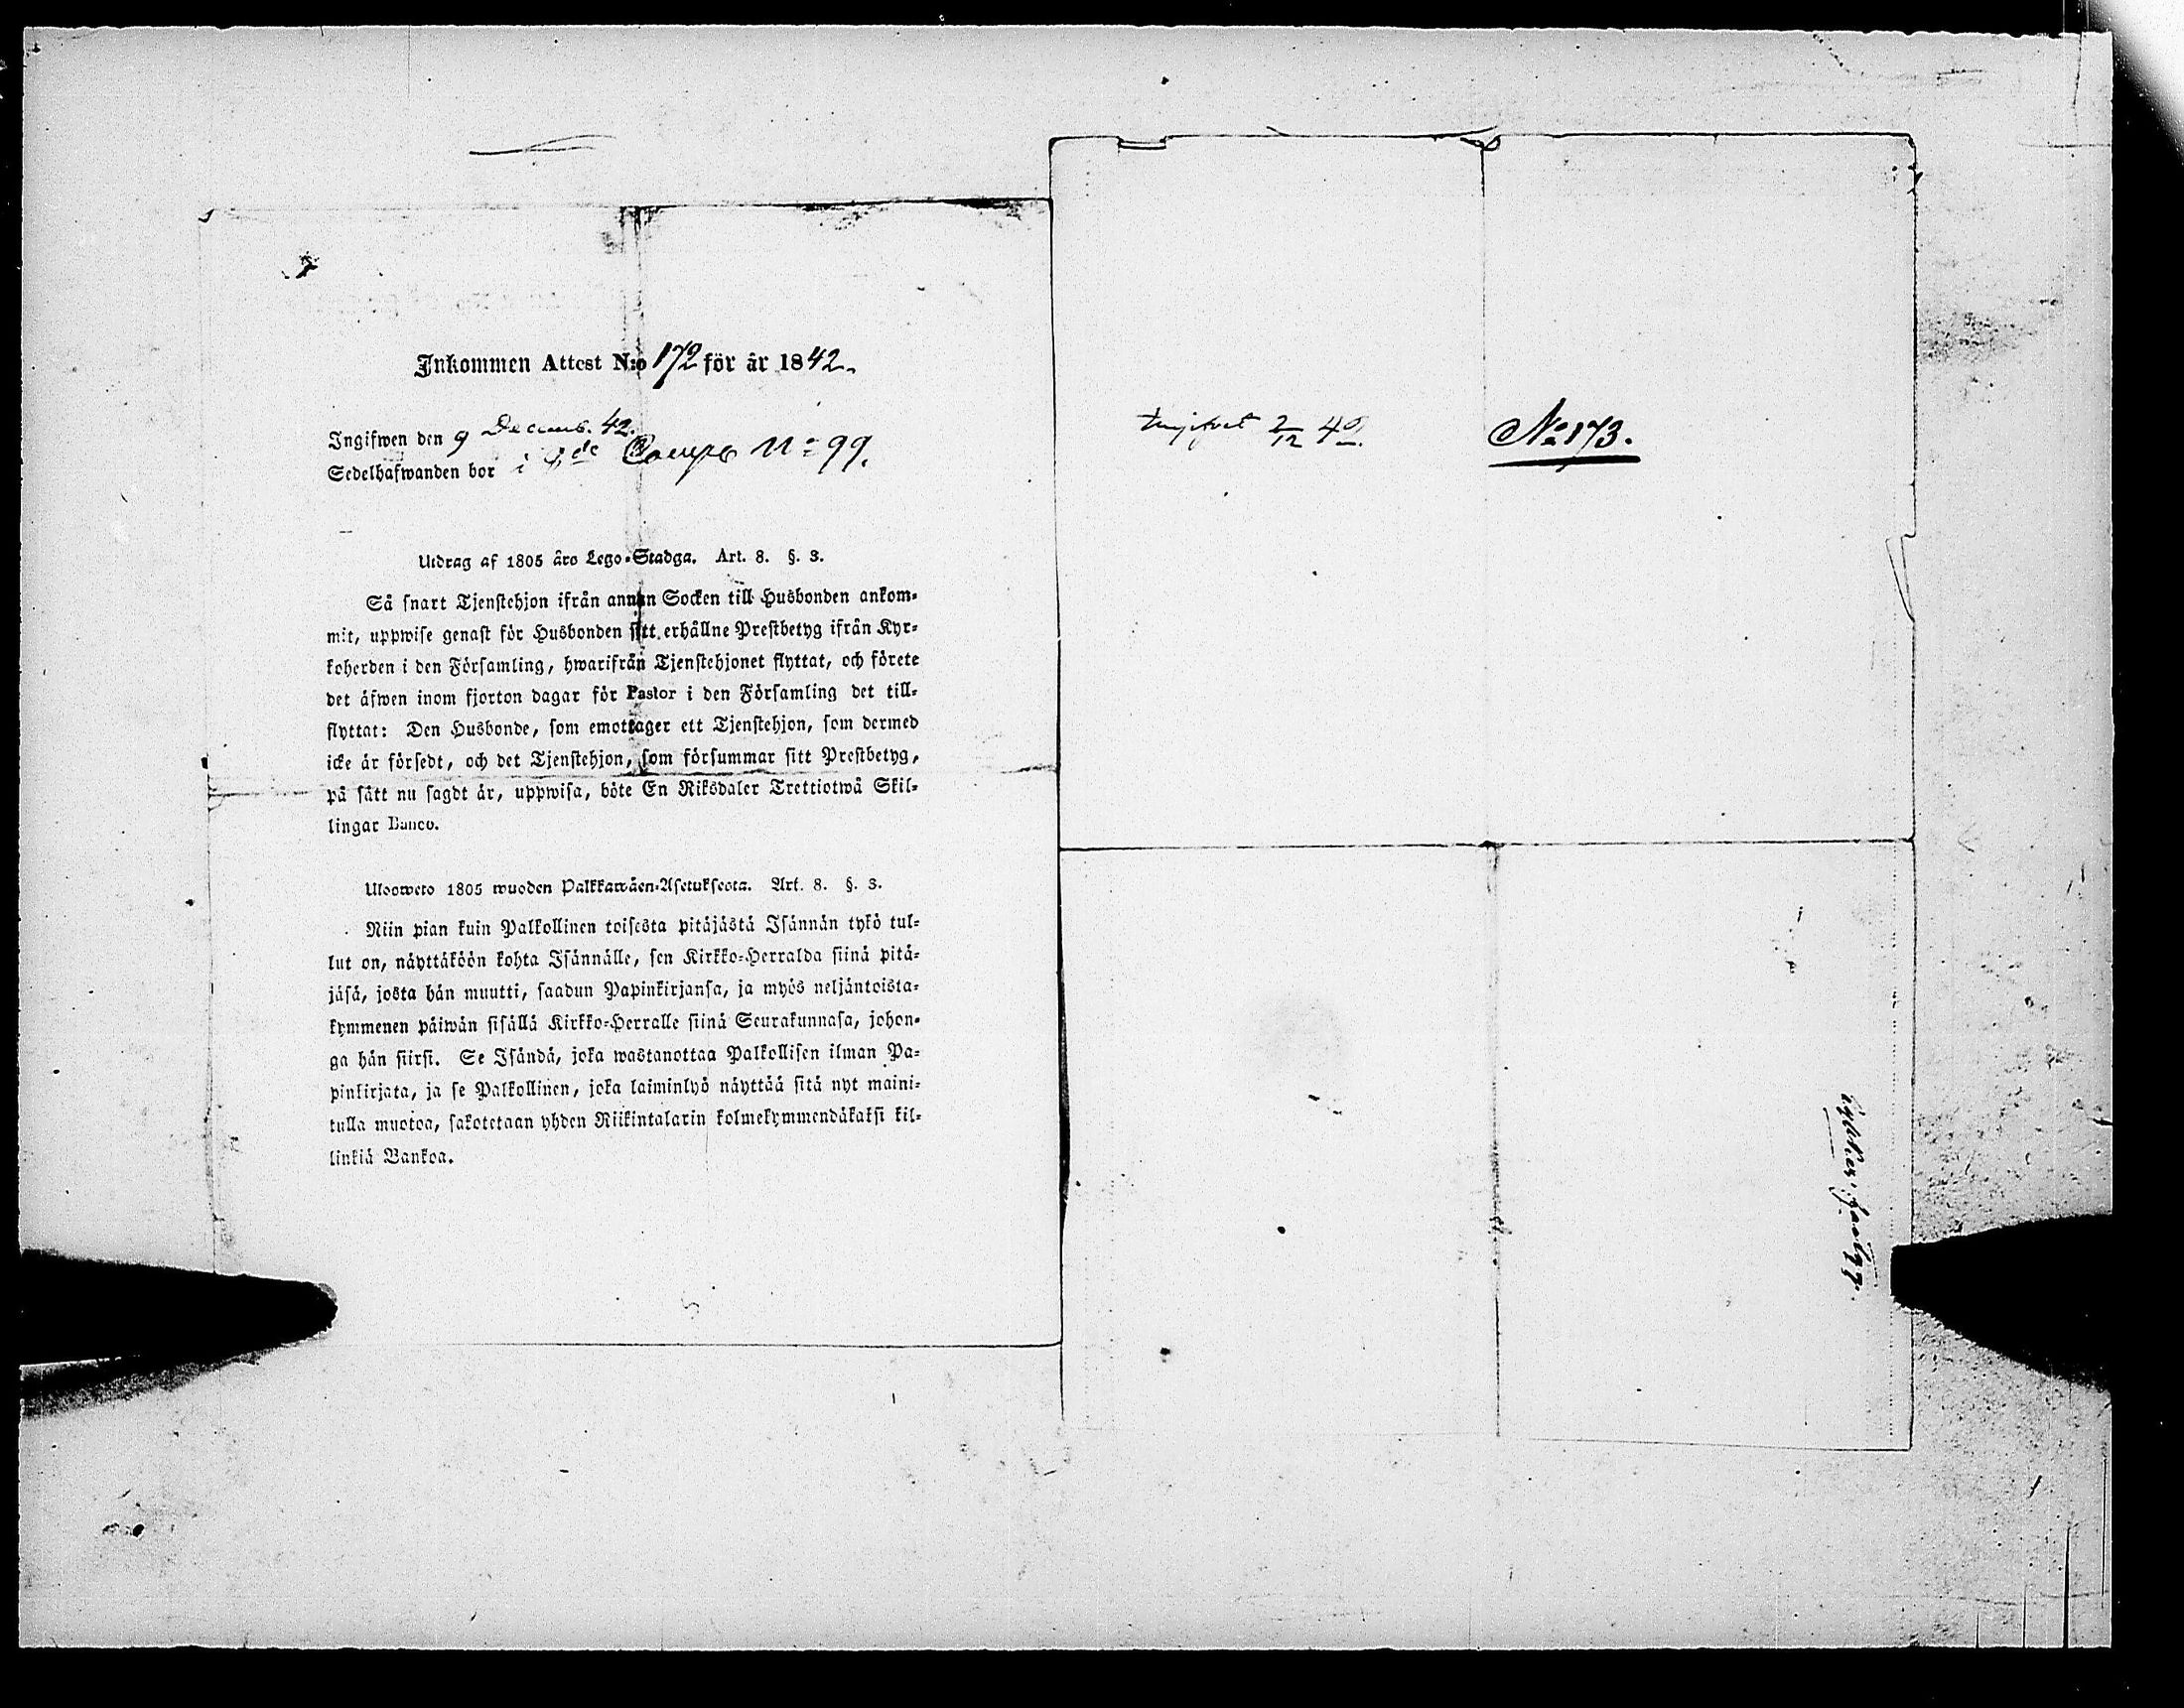 Inkommen Attest N:o 172 för år 1842.
Ingifwen den 9 Decemb. 42.
Sedelhafwanden bor i de Camps No 99.
Utdrag af 1805 års Lego-Stadga. Art. 8. §. 3.
Så snart Tjenstehjon ifrån annan Socken till Husbonden ankom-
mit, uppwise genast för Husbonden sitt erhållne Prestbetyg ifrån Kyr-
koherden i den Församling, hwarifrån Tjenstehjonet flyttat, och förete
det äfwen inom fjorton dagar för Pastor i den Församling det till-
flyttat: Den Husbonde, som emottager ett Tjenstehjon, som dermed
icke är försedt, och det Tjenstehjon, som försummar sitt Prestbetyg,
på sätt nu sagdt är, uppwisa, böte En Riksdaler Trettiotwå Skil-
lingar Banco.
Ulosweto 1805 wuoden Palkkawäen-Asetuksesta. Art. 8. §. 3.
Niin pian kuin Palkollinen toisesta pitäjästä Isännän tykö tul-
lut on, näyttäköön kohta Isännälle, sen Kirkko-Herralda siinä pitä-
jäsä, josta hän muutti, saadun Papinkirjansa, ja myös neljäntoista-
kymmenen päiwän sisällä Kirkko-Herralle siinä Seurakunnasa, johon-
ga hän siirsi. Se Isändä, joka wastanottaa Palkollisen ilman Pa-
pinkirjata, ja se Palkollinen, joka laiminlyö näyttää sitä nyt maini-
tulla muotoa, sakotetaan yhden Riikintalarin kolmekymmendäkaksi kil-
linkiä Bankoa.
2/12 42.
No 173.